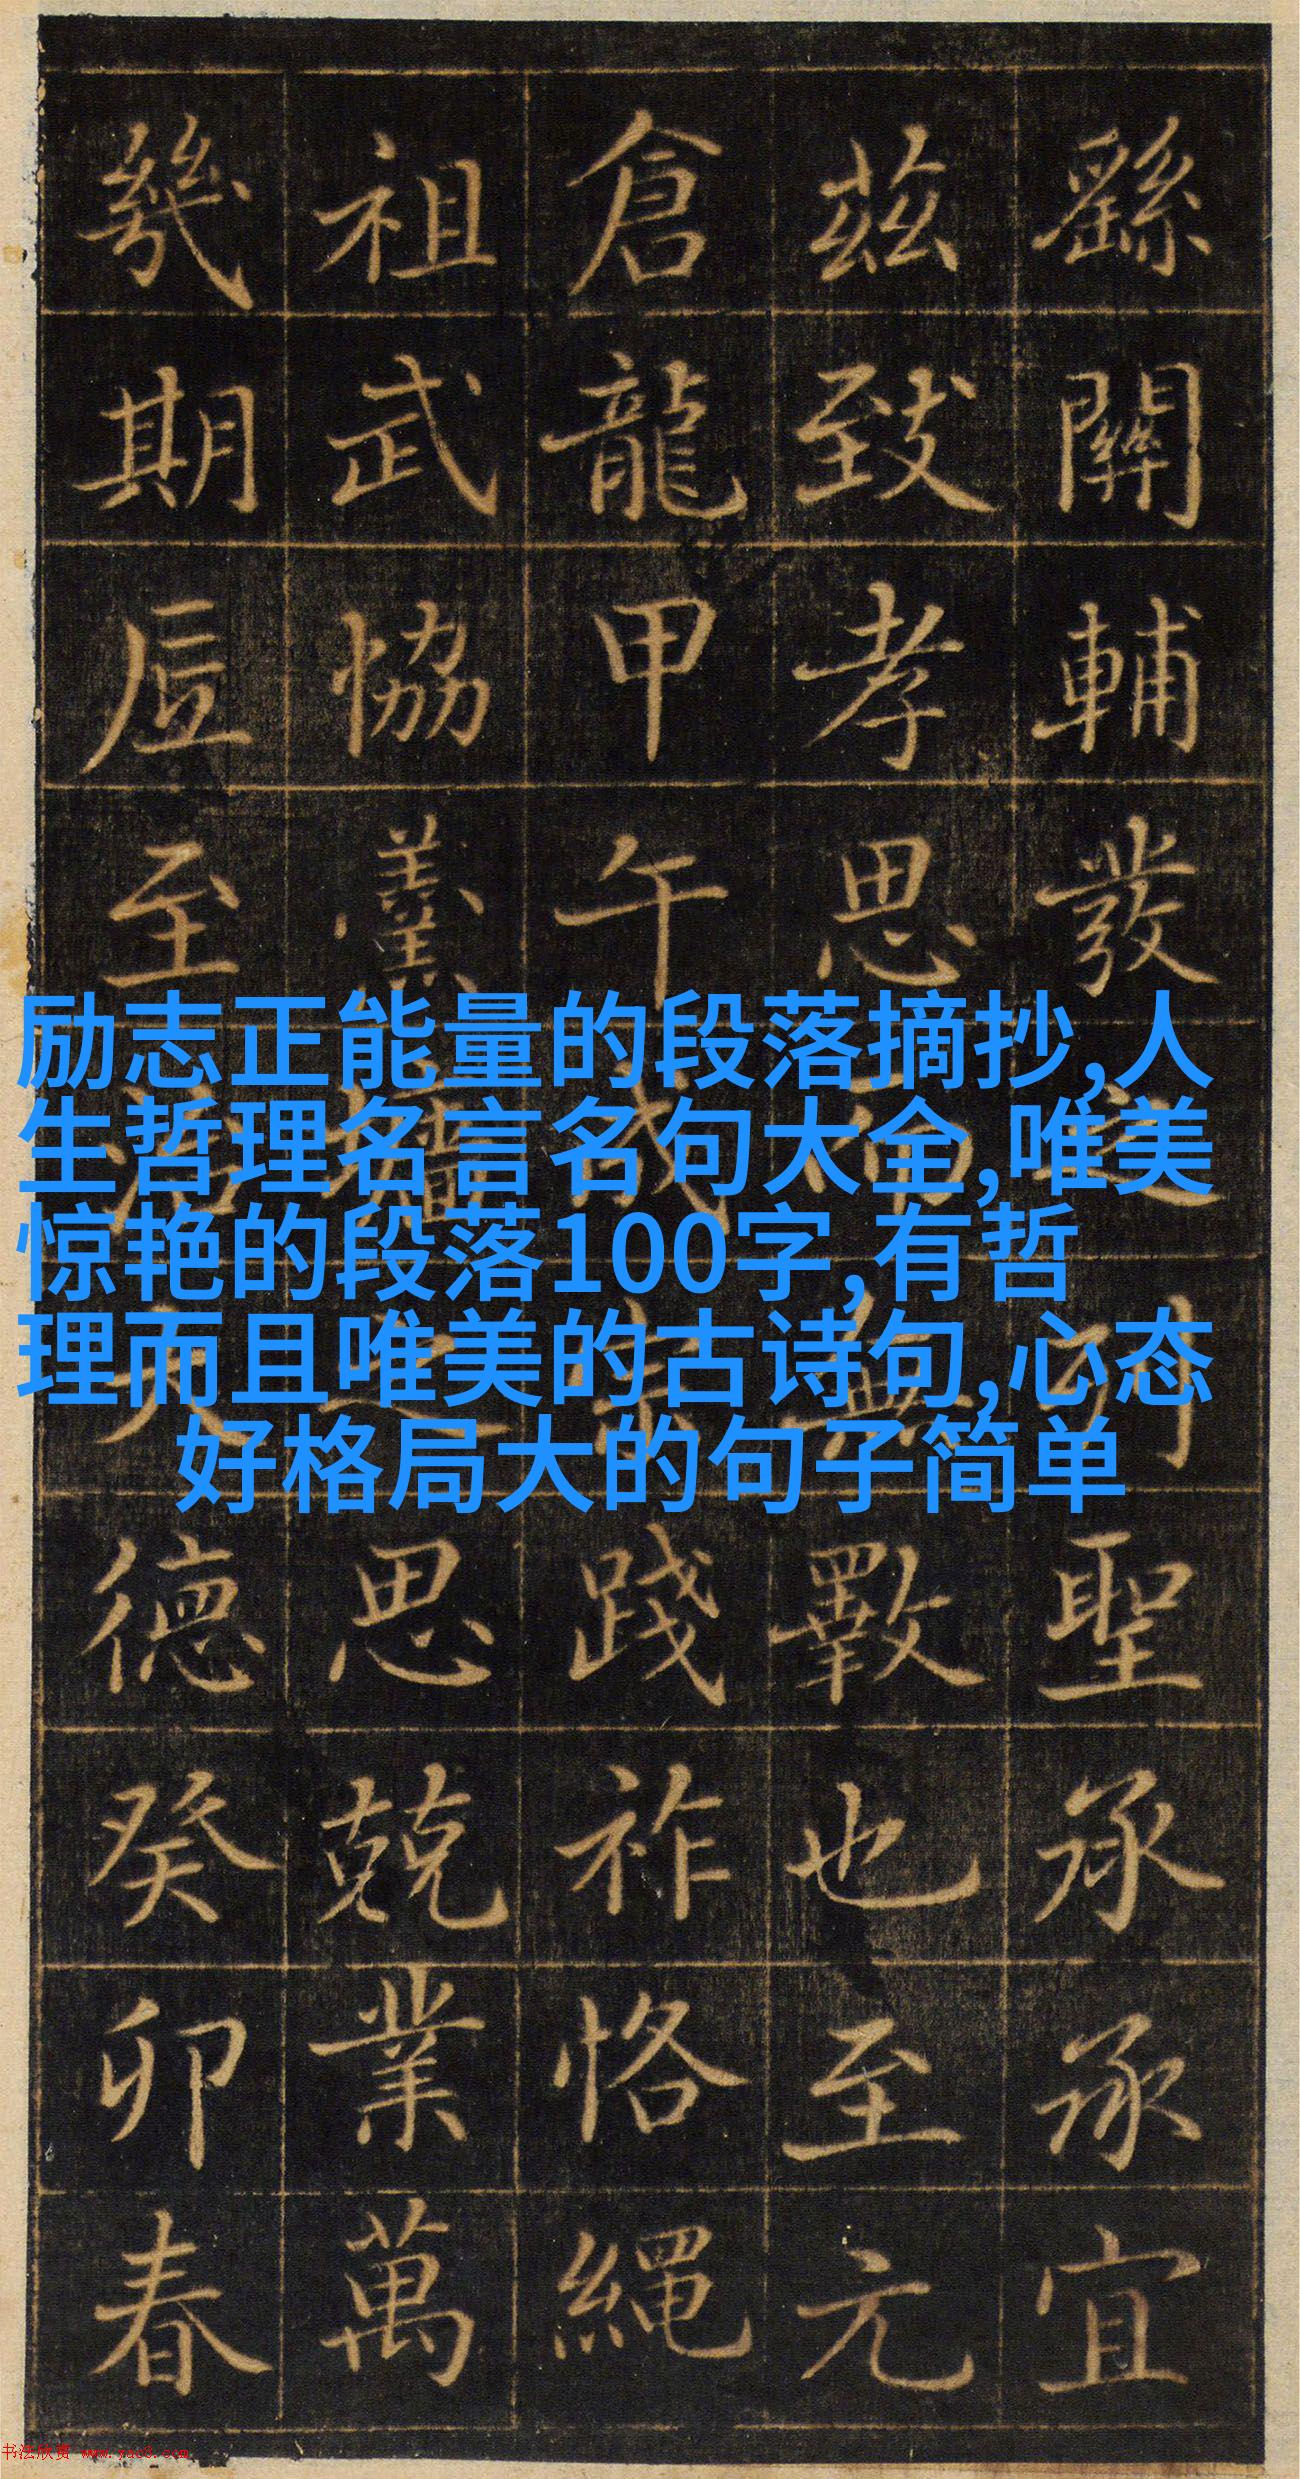 繇關輔發列聖承承宜
茲致孝思而無斁也至元
倉龍甲午成宗踐祚恪繩
祖武協羹墻之思兢業萬
幾期至治大德癸卯春
励志正能量的段落摘抄,人
生哲理名言名句大全,唯美
惊艳的段落100字,有哲
理而且唯美的古诗句,心态
好格局大的句子简单
书法欣赏 www.yac8.com